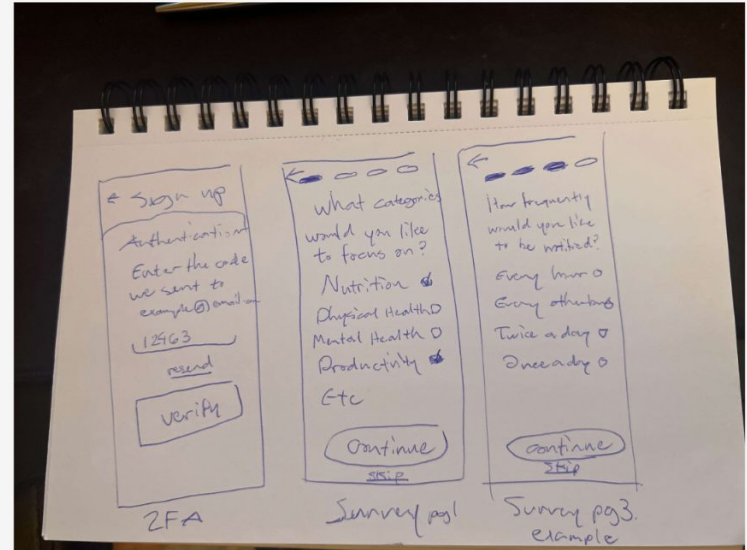 ← Sign up
Authentication
Enter the code
we sent to
example@email.com
12463
resend
verify
2FA
←
What categories
would you like
to focus on?
Nutrition
Physical Health
Mental Health
Productivity
Etc
Continue
skip
Survey pg1
←
How frequently
would you like
to be notified?
Every hour
Every other hour
Twice a day
Once a day
continue
skip
Survey pg3.
example